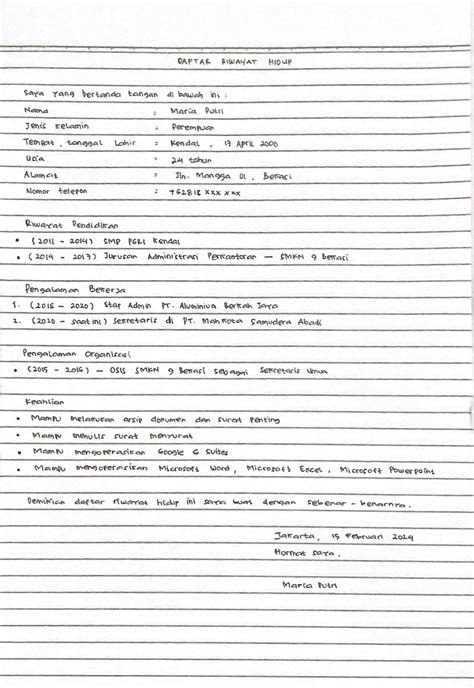 DAFTAR RIWAYAT HIDUP
Saya yang bertanda tangan di bawah ini :
Nama : Maria Putri
Jenis Kelamin : Perempuan
Tempat, tanggal Lahir : Kendal, 17 April 2000
Usia : 24 tahun
Alamat : Jln. Mangga 01, Bekasi
Nomor telepon : +62818 xxx xxx
Riwayat Pendidikan
• (2011 - 2014) SMP PGRI Kendal
• (2014 - 2017) Jurusan Administrasi Perkantoran — SMKN 9 Bekasi
Pengalaman Bekerja
1. (2018 - 2020) Staf Admin PT. Aluminium Berkah Jaya
2. (2020 - saat ini) Sekretaris di PT. Mahkota Samudera Abadi
Pengalaman Organisasi
• (2015 - 2016) — OSIS SMKN 9 Bekasi sebagai Sekretaris Umum
Keahlian
• Mampu melakukan arsip dokumen dan surat penting
• Mampu menulis surat menyurat
• Mampu mengoperasikan Google G Suites
• Mampu mengoperasikan Microsoft Word, Microsoft Excel, Microsoft Powerpoint
Demikian daftar riwayat hidup ini saya buat dengan sebenar-benarnya.
Jakarta, 15 Februari 2024
Hormat saya,
Maria Putri